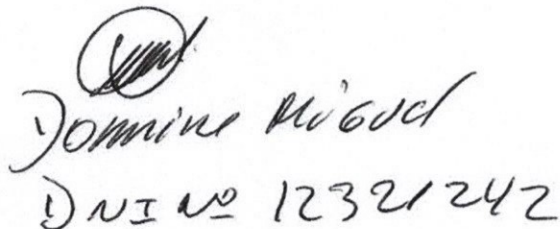 Domine Miguel
DNI Nº 12321242